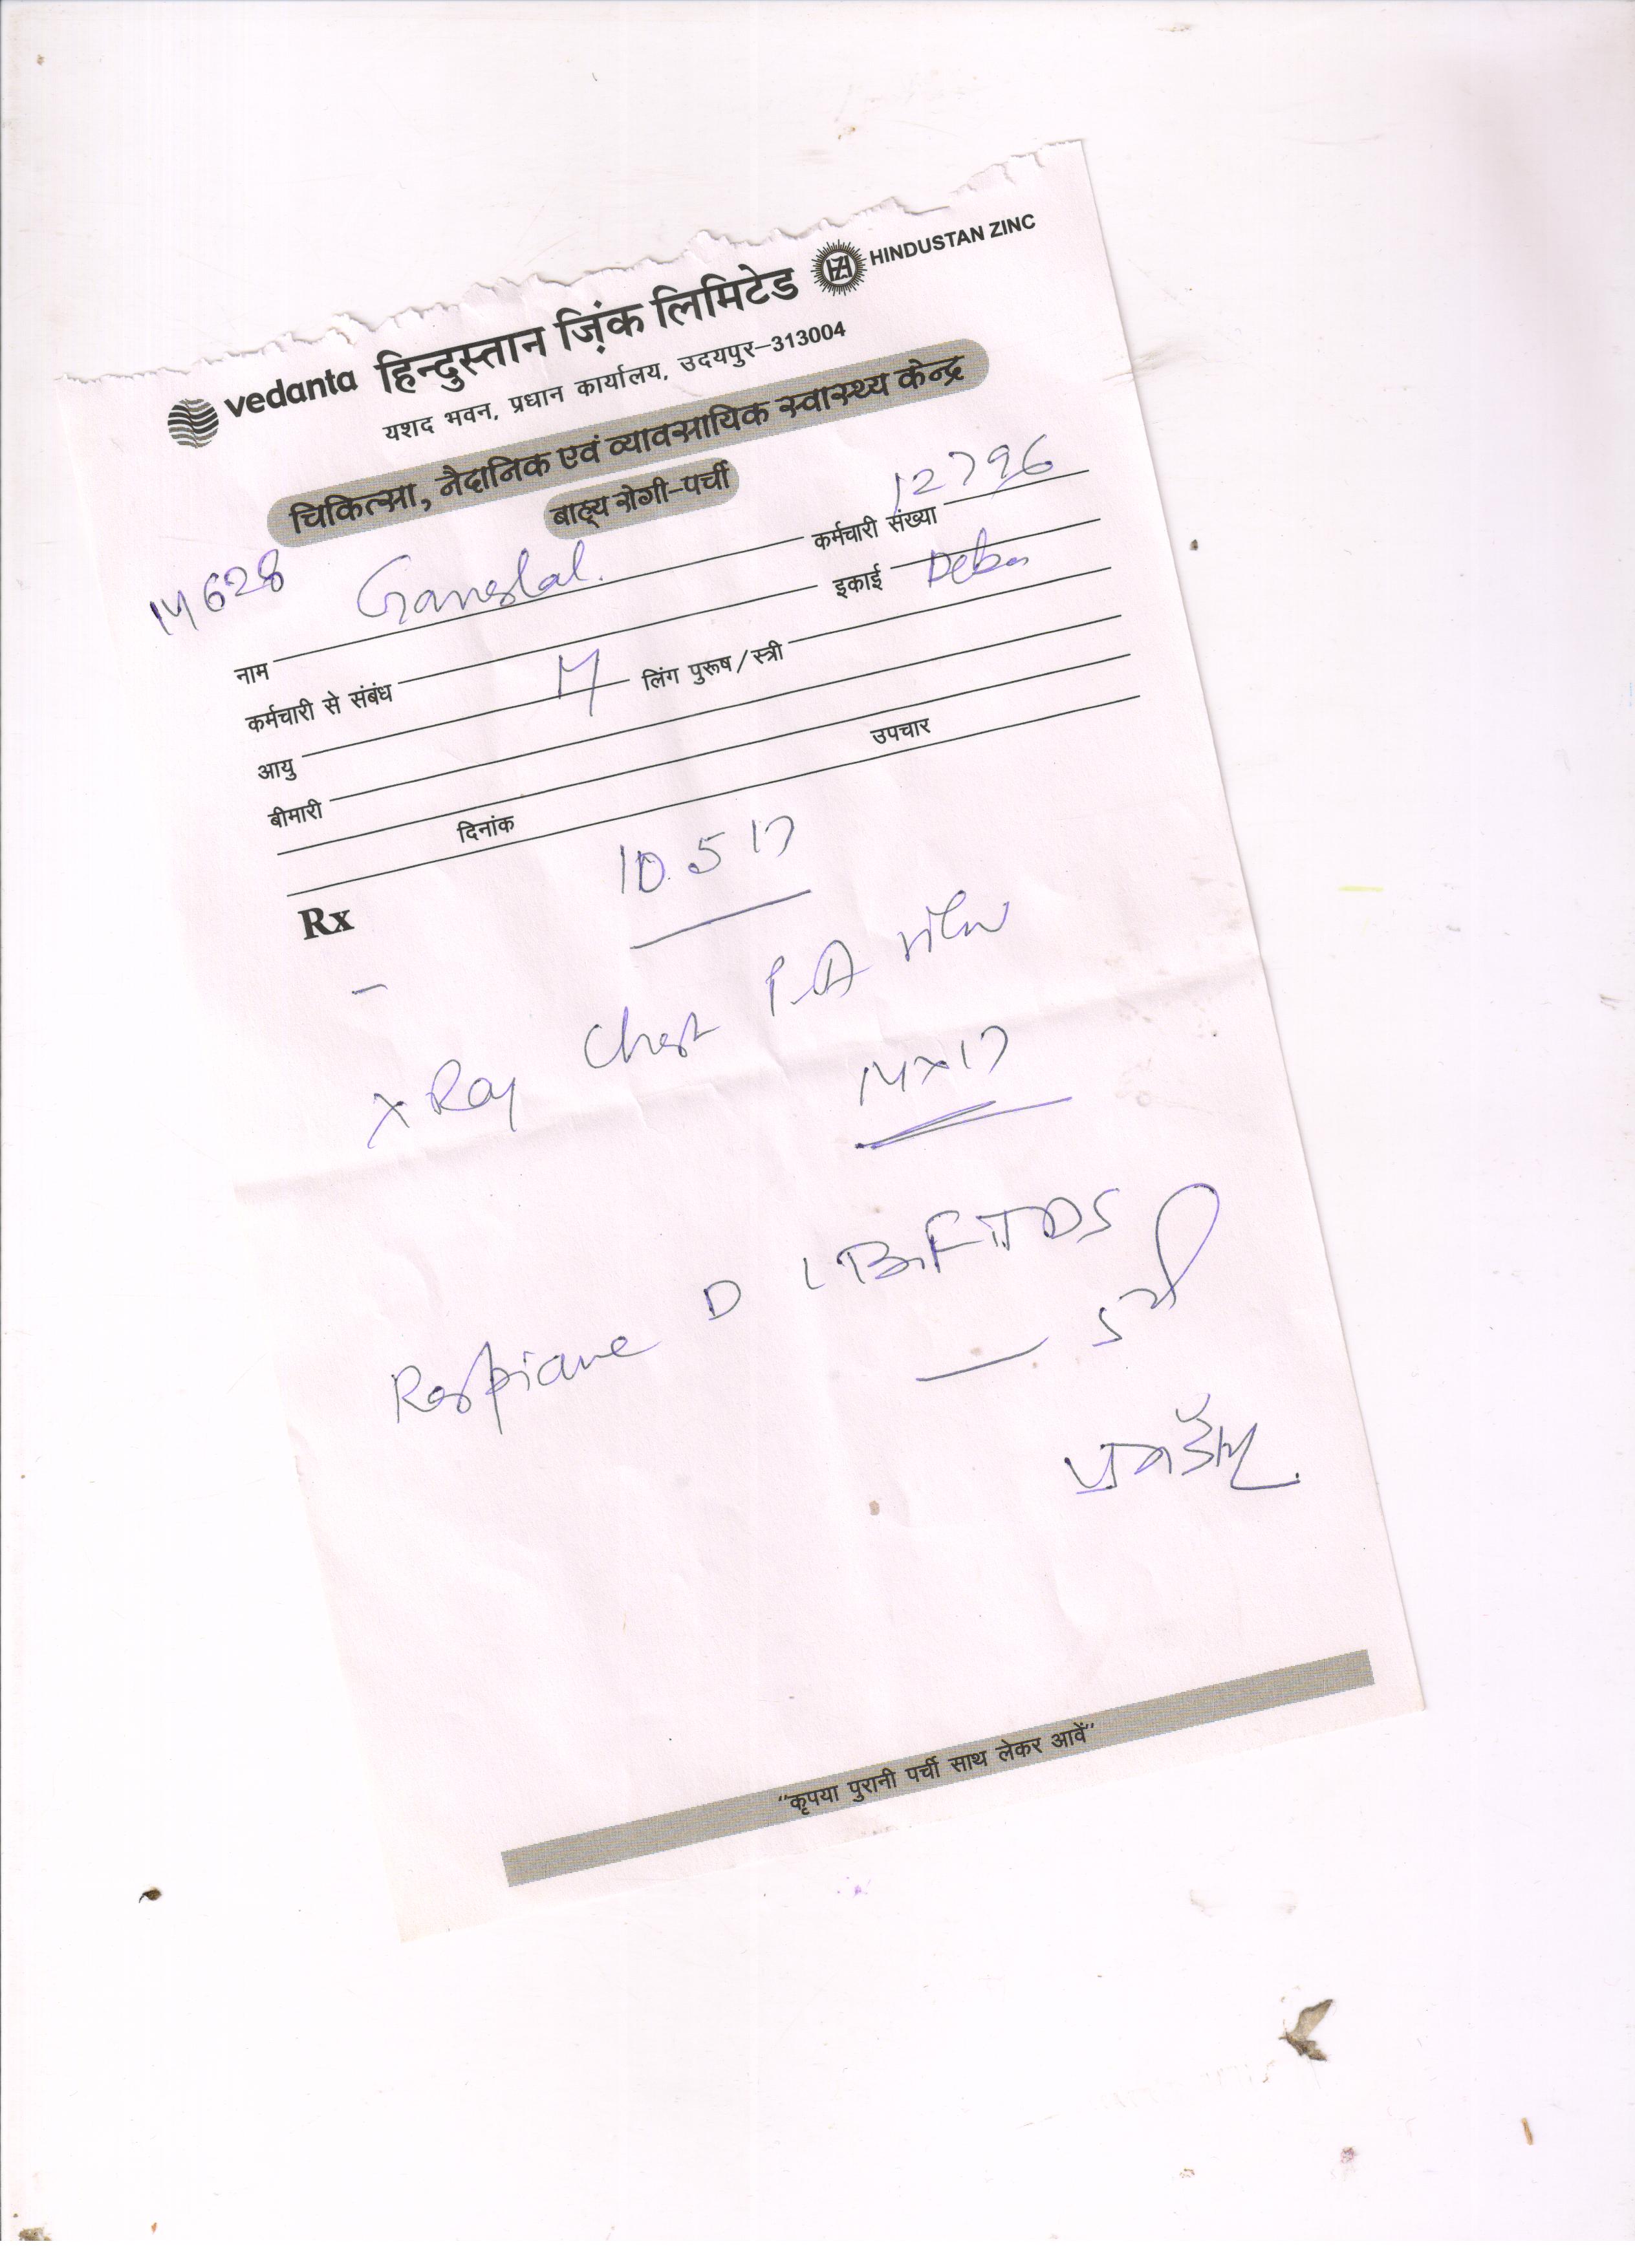 vedanta हिन्दुस्तान ज़िंक लिमिटेड HINDUSTAN ZINC
यशद भवन, प्रधान कार्यालय, उदयपुर–313004
चिकित्सा, नैदानिक एवं व्यावसायिक स्वास्थ्य केन्द्र
बाह्य रोगी-पर्ची
14628
नाम कर्मचारी संख्या 12796
कर्मचारी से संबंध इकाई
आयु M लिंग पुरूष/स्त्री
बीमारी
दिनांक उपचार
Rx 10.5 17
X Ray Chest P.A view
14x17
D
"कृपया पुरानी पर्ची साथ लेकर आवें"